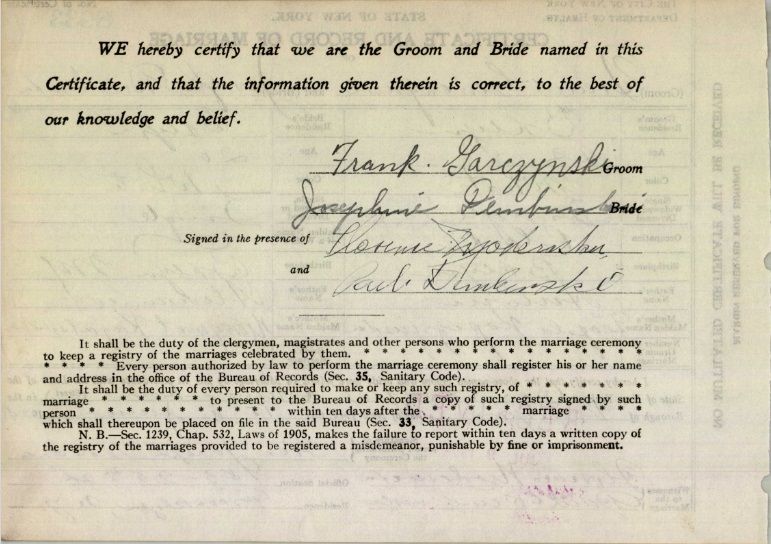 WE hereby certify that we are the Groom and Bride named in this
Certificate, and that the information given therein is correct, to the best of
our knowledge and belief.
Frank. Garczynski Groom
Josephine Dembinski Bride
Signed in the presence of Florence
and Paul Dembinski
It shall be the duty of the clergymen, magistrates and other persons who perform the marriage ceremony
to keep a registry of the marriages celebrated by them. * * * * * * * * * * * * * * * *
* * * * Every person authorized by law to perform the marriage ceremony shall register his or her name
and address in the office of the Bureau of Records (Sec. 35, Sanitary Code).
It shall be the duty of every person required to make or keep any such registry, of * * * * * *
marriage * * * * * to present to the Bureau of Records a copy of such registry signed by such
person * * * * * * * * * * within ten days after the * * * * * marriage * * * *
which shall thereupon be placed on file in the said Bureau (Sec. 33, Sanitary Code).
N. B.—Sec. 1239, Chap. 532, Laws of 1905, makes the failure to report within ten days a written copy of
the registry of the marriages provided to be registered a misdemeanor, punishable by fine or imprisonment.